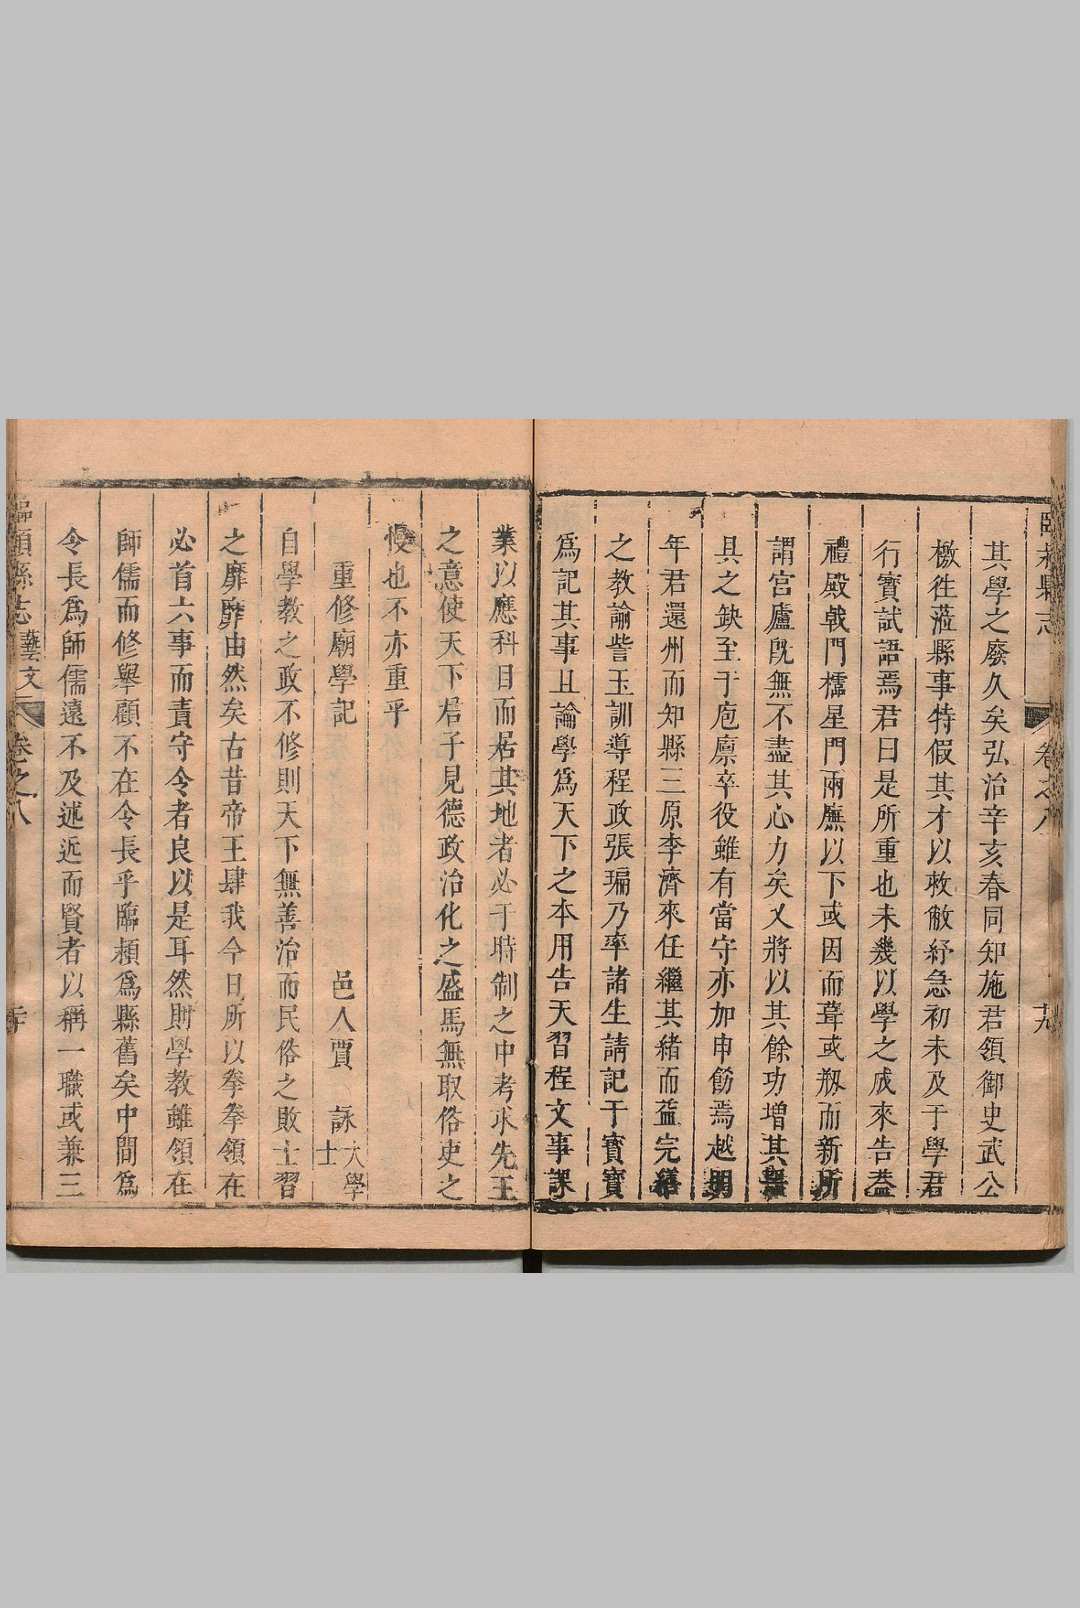 臨潁縣志 卷之八 十九
其學之廢久矣弘治辛亥春同知施君領御史武公
檄徃蒞縣事特假其才以救敝紓急初未及于學君
行實試語焉君曰是所重也未幾以學之成來告葢
禮殿戟門櫺星門兩廡以下或因而葺或剏而新所
謂宮廬旣無不盡其心力矣乂將以其餘功增其器
具之缺至于庖廪卒役雖有當守亦加申飭焉越明
年君還州而知縣三原李濟來任繼其緒而益完繕
之教諭訾玉訓導程政張㻞乃率諸生請記于寶寶
爲記其事且論學爲天下之本用告天習程文事課
業以應科目而居其地者必于時制之中考求先王
之意使天下居子見德政治化之盛焉無取俗吏之
慢也不亦重乎
重修廟學記 邑人賈 詠 大學士
自學教之政不修則天下無善治而民俗之敗士習
之靡靡由然矣古昔帝王肆我今日所以拳拳領在
必首六事而責守令者良以是耳然則學教雖領在
師儒而修舉顧不在令長乎臨潁爲縣舊矣中間爲
令長爲師儒遠不及述近而賢者以稱一職或兼三
臨潁縣志 藝文 卷之八 二十